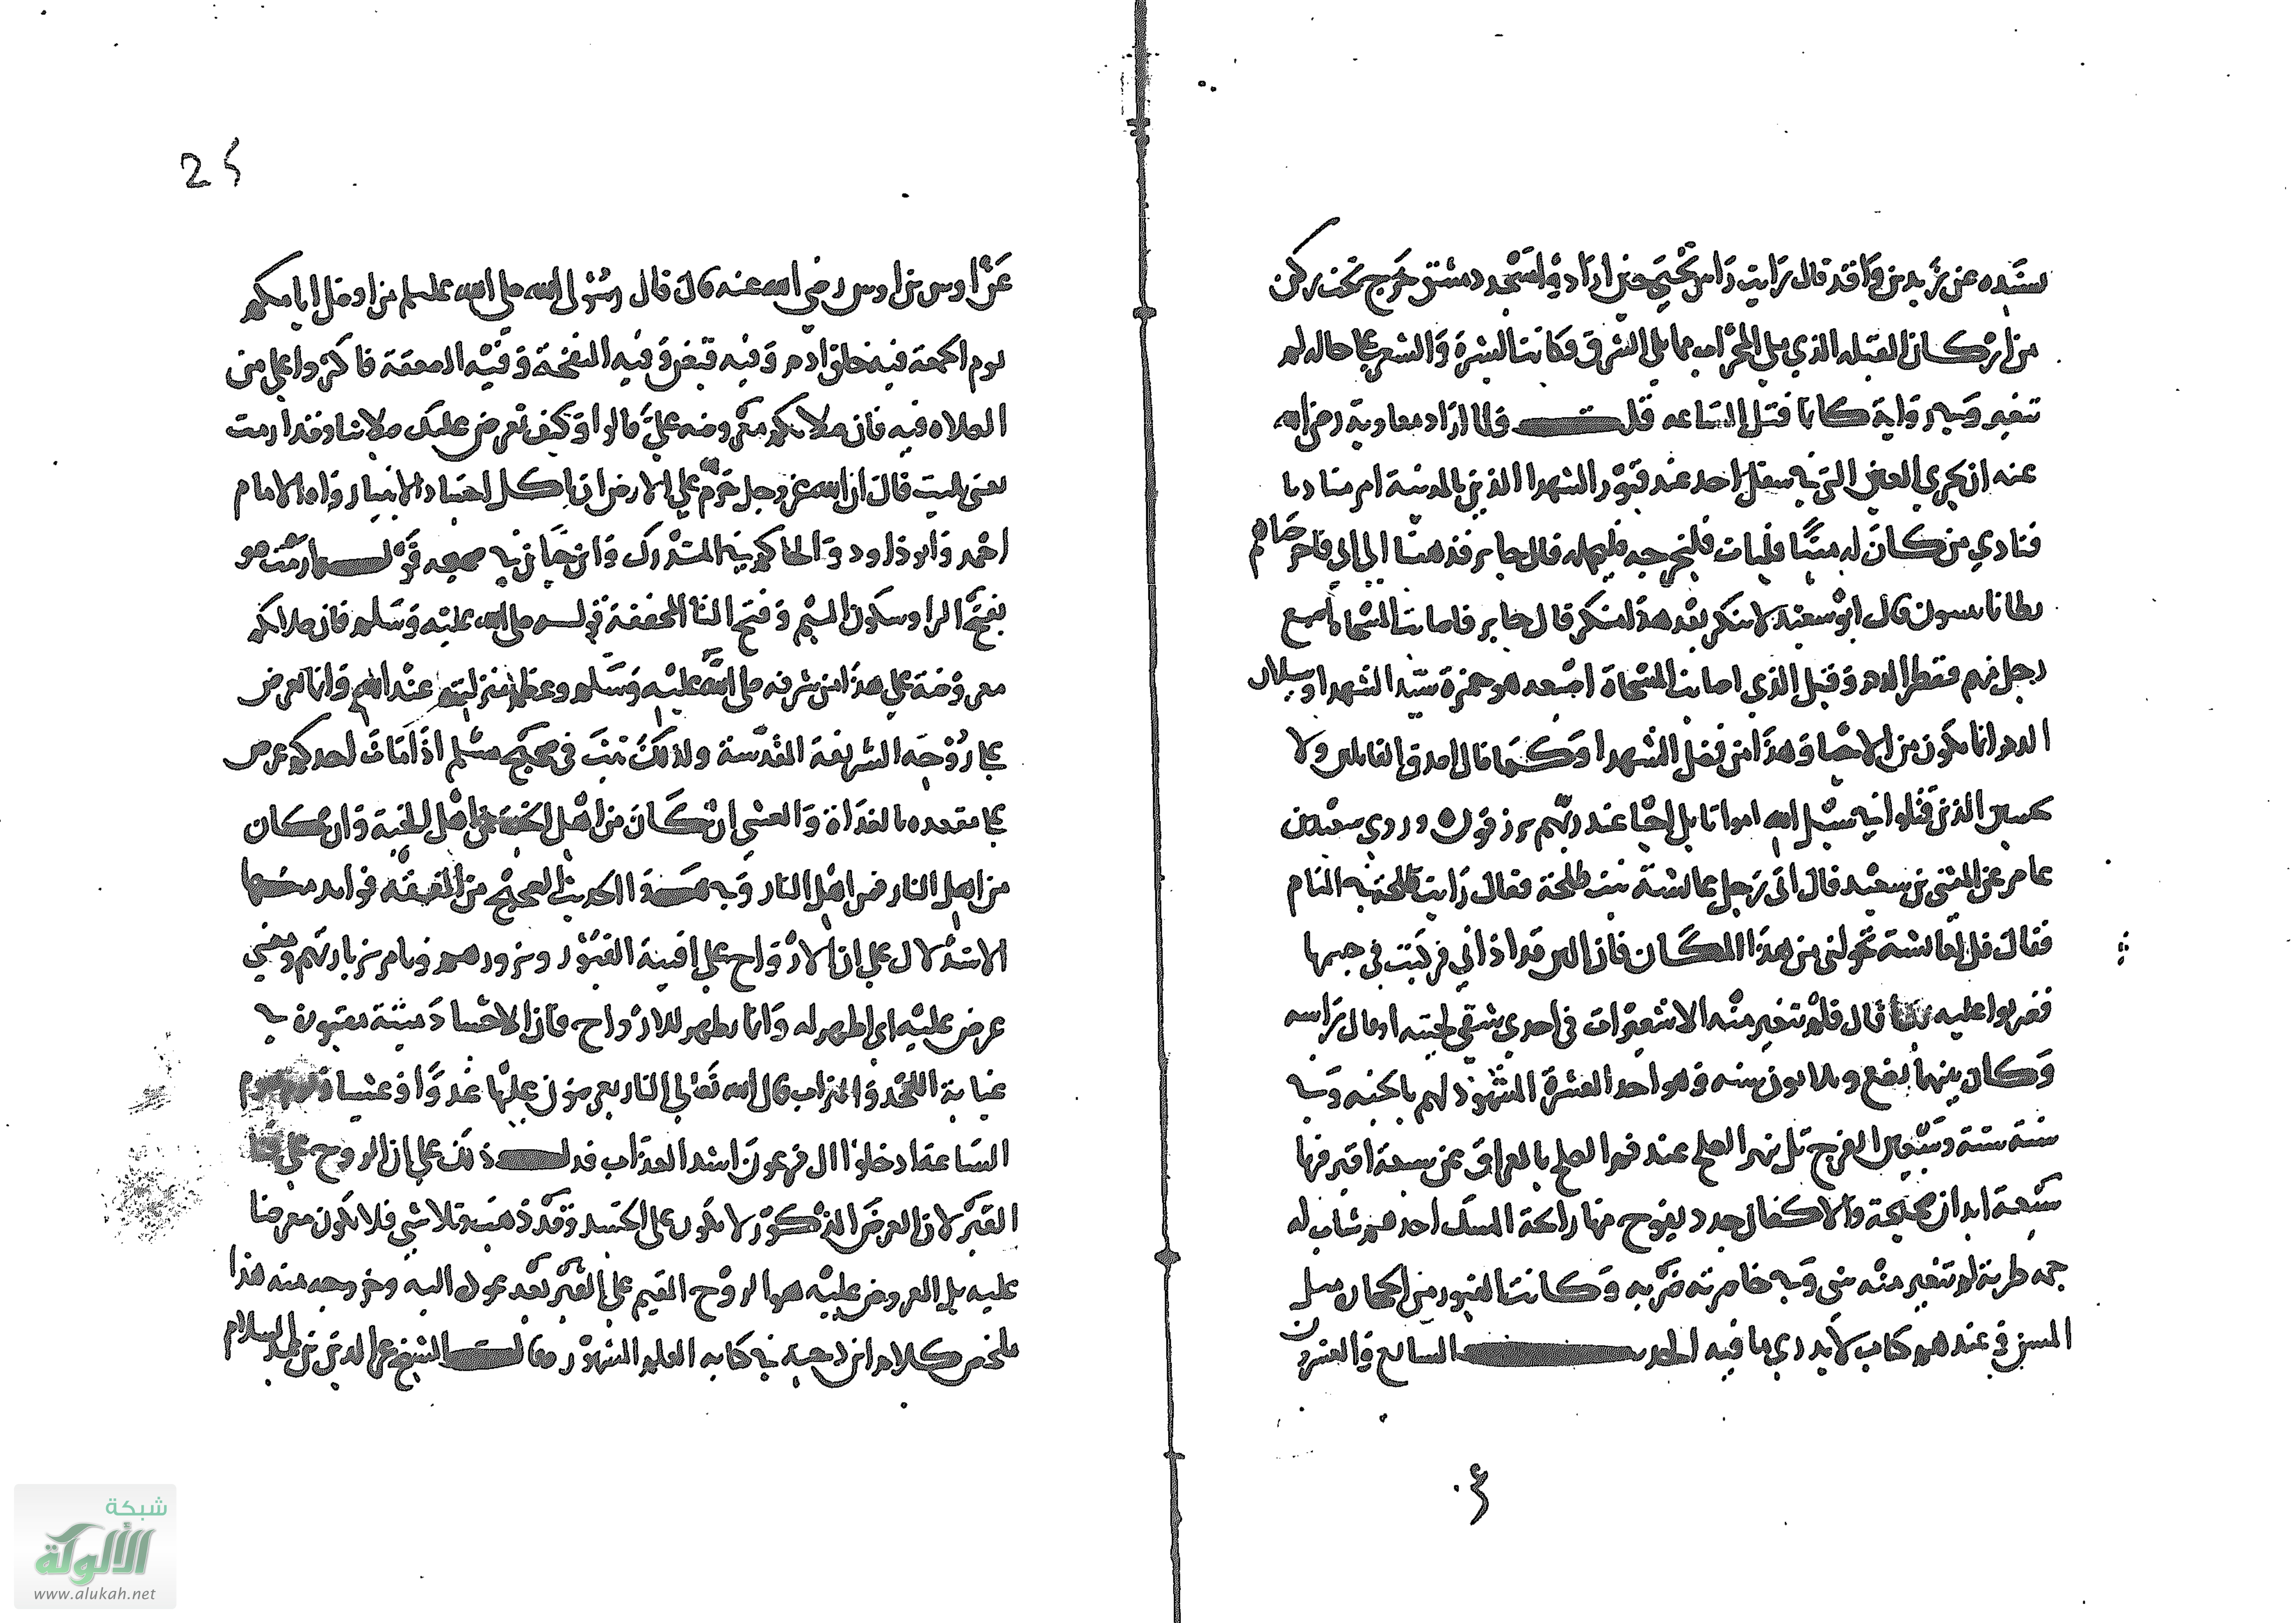 بسنده عن زيد بن واقد قال رايت راس يحيي حين ارادوا مسجد دمشق خرج تحت ركن
من اركان القبله الذي يلي المحراب مما يلي الشرق فكانت البشرة والشعر علي حاله لم
تتغير وفي رواية كانما قتل الساعه قلت ولما اراد معاوية رضي الله
عنه ان يجري العين التي في سفل احد عند قبور الشهدا الذين بالمدينة امر مناديا
فنادي من كان له ميتا فليات فليخرجه فليحوله قال جابر فذهبنا الي ابي فاخرجناهم
رطابا يتثنون قال ابو سعيد لا ينكر بعد هذا منكر قال جابر فاصابت المسحاة اصبع
رجل منهم فتقطر الدم وقيل الذي اصابت المسحاة اصبعه هو حمزة سيد الشهدا وسيلان
الدم انما يكون من الاحيا وهذا من فضل الشهدا وكما قال اصدق القايلين ولا
تحسبن الذين قتلوا في سبيل الله امواتا بل احيا عند ربهم يرزقون وروي سعيد بن
عامر عن المثني بن سعيد قال اتي رجل عايشة بنت طلحة فقال رايت طلحة في المنام
فقال قل لعايشة تحولني من هذا المكان فان البرد قد اذاني فركبت في حشمها
فضربوا عليه بنا قال فلم تتغير منه الا شعيرات في احدي شقي لحيته او قال راسه
وكان بينهما بضع وثلاثون سنه وهو احد العشرة المشهود لهم بالجنه وفي
سنة ستة وسبعين انفرج تل بنهر الصلح عند فم الصلح بالعراق عن سبعة اقبر فيها
سبعة ابدان صحيحة والاكفان جدد يفوح منها رائحة المسك احدهم شاب له
جمه طرية لم تتغير منه شي وفي خاصرته ضربه وكانت القبور من الحجار مثل
المسن وعندهم كتاب لا يدري ما فيه الحديث السابع والعشرون
25
عن اوس بن اوس رضي الله عنه قال قال رسول الله صلي الله عليه وسلم من افضل ايامكم
يوم الجمعة فيه خلق ادم وفيه قبض وفيه النفخة وفيه الصعقة فاكثروا علي من
الصلاه فيه فان صلاتكم معروضه علي قالوا وكيف تعرض عليك صلاتنا وقد ارمت
يعني بليت قال ان الله عز وجل حرم علي الارض ان تاكل اجساد الانبيا رواه الامام
احمد وابو داود والحاكم في المستدرك وابن حبان في صحيحه قوله ارمت هو
بفتح الرا وسكون الميم وفتح التا المخففة قوله صلي الله عليه وسلم فان صلاتكم
معروضة علي هذا من شرفه صلي الله عليه وسلم وعظم منزلته عند الله وانما تعرض
علي روحه الشريفة المقدسة ولذلك ثبت في صحيح مسلم اذا مات احدكم عرض
علي مقعده بالغداة والعشي ان كان من اهل الجنة فمن اهل الجنة وان كان
من اهل النار فمن اهل النار وفي هذا الحديث الصحيح من الفقه فوايد منها
الاستدلال علي ان الارواح علي افنية القبور ونزورهم ونامر بزيارتهم ومعني
عرض عليه اي اظهر له وانما يظهر للارواح فان الاجساد ميتة مغيبون في
غيابة اللحد والتراب قال الله تعالي النار يعرضون عليها غدوا وعشيا ويوم تقوم
الساعة ادخلوا ال فرعون اشد العذاب فدل ذلك علي ان الروح علي فنا
القبر لان العرض المذكور لا يكون علي الجسد وقد ذهب وتلاشي فلا يكون معرضا
عليه بل المعروض عليه هو الروح المقيم علي القبر بعد عوده اليه وخروجه منه هذا
ملخص كلام ابن دحية في كتابه العلم المشهور وقال الشيخ عز الدين بن عبد السلام
شبكة
الألوكة
www.alukah.net